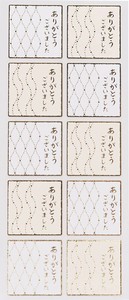 ありがとう
ございました
ありがとう
ございました
ありがとう
ございました
ありがとう
ございました
ありがとう
ございました
ありがとう
ございました
ありがとう
ございました
ありがとう
ございました
ありがとう
ございました
ありがとう
ございました